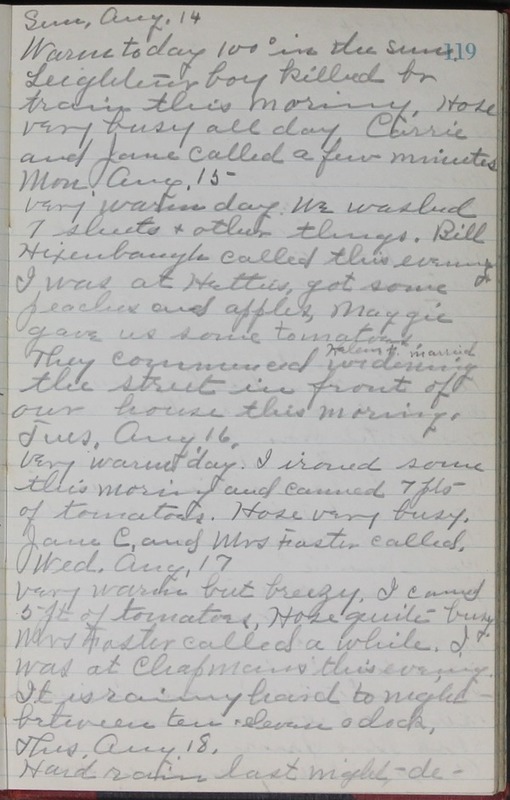 Sun, Aug. 14
119
Warm today 100° in the sun.
Leightner boy killed by
train this morning, Hose
very busy all day Carrie
and Jane called a few minutes
Mon, Aug, 15
very warm day. We washed
7 sheets & other things. Bill
Hixenbaugh called this evening
I was at Hatties, got some
peaches and apples, Maggie
gave us some tomatoes
Helen married
They commenced widening
the street in front of
our house this morning.
Tues, Aug 16,
very warm day. I ironed some
this moring and canned 7 pts
of tomatoes. Hose very busy.
Jane C, and Mrs Foster called,
Wed. Aug, 17
very warm but breezy, I caned
5 pt of tomatoes, Hose quite busy
Mrs Foster called a while. I
was at Chapmans this evening.
It is rainy hard to night
between ten eleven oclock,
Thus, Aug 18,
Hard rain last night, de-